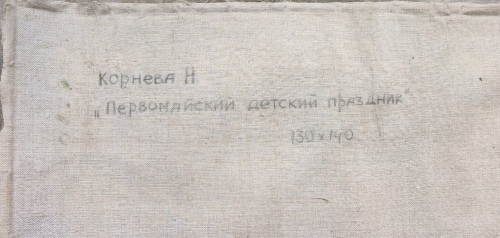 Корнева Н
„Первомайский детский праздник"
130х140